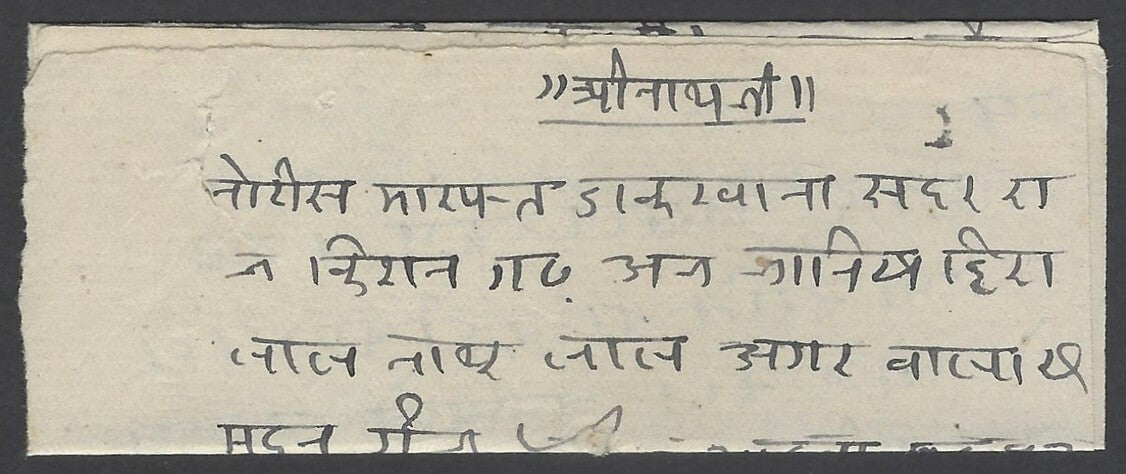 ॥श्रीनाथजी॥
नोटीस मारफत डाकखाना सदर रा
ज किशनगढ अज जानिब हिरा
लाल नाथुलाल अगरवाला
मदनगंज